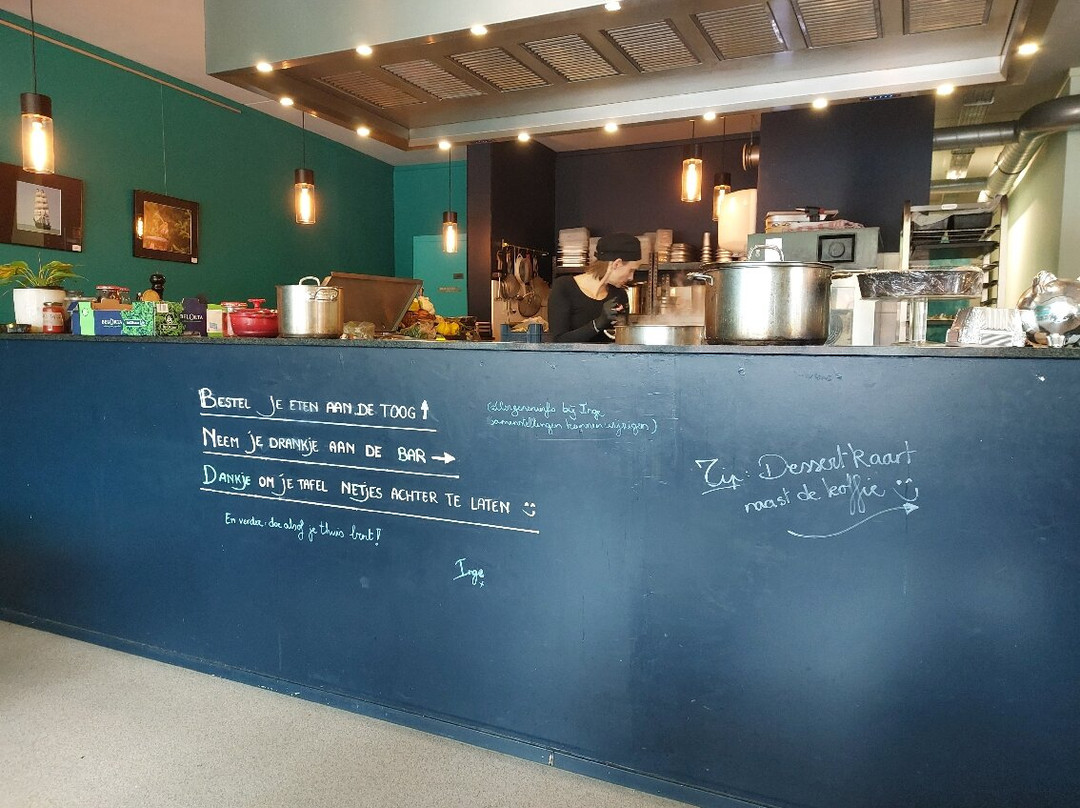 BESTEL JE ETEN AAN DE TOOG ↑
NEEM JE DRANKJE AAN DE BAR →
DANKJE OM JE TAFEL NETJES ACHTER TE LATEN :)
En verder: doe alsof je thuis bent!
Inge x
(Allergeneninfo bij Inge
samenstellingen kunnen wijzigen)
Tip: Dessertkaart
naast de koffie :)
BELORTA
BELORTA